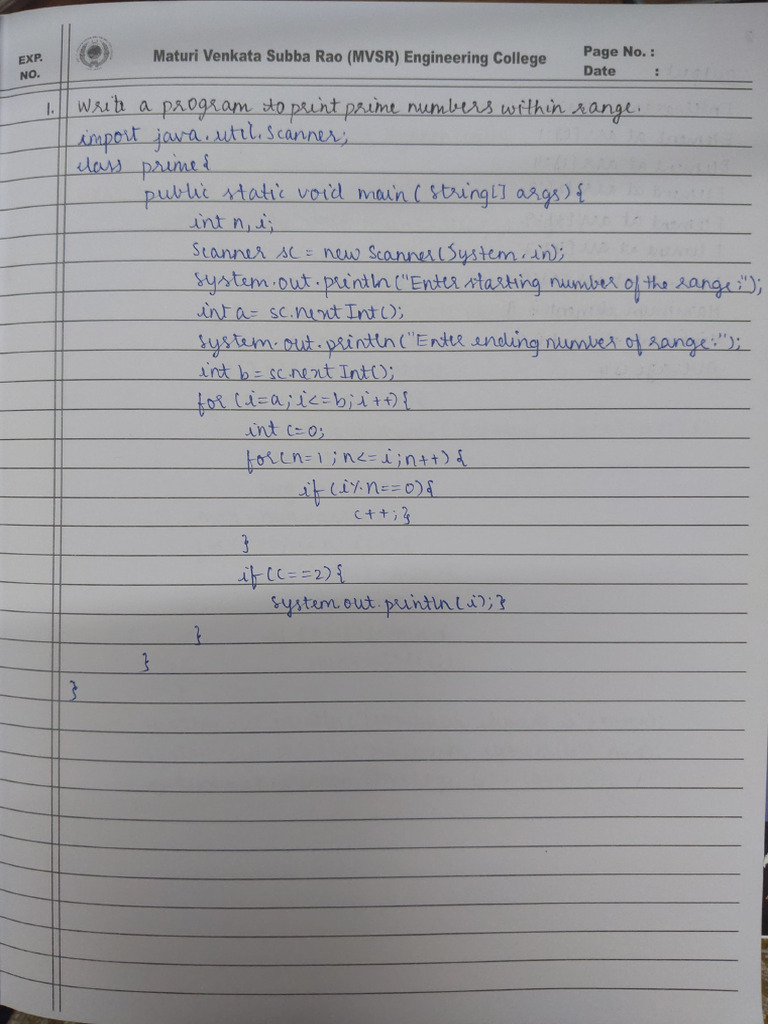 EXP. NO.
Maturi Venkata Subba Rao (MVSR) Engineering College
Page No. :
Date :
1. Write a program to print prime numbers within range.
import java.util.Scanner;
class prime{
public static void main(String[] args){
int n, i;
Scanner sc = new Scanner(System.in);
System.out.println("Enter starting number of the range:");
int a= sc.nextInt();
System.out.println("Enter ending number of range:");
int b = sc.nextInt();
for (i=a; i<=b; i++){
int c=0;
for(n=1; n<=i; n++){
if (i%n==0){
c++;}
}
if (c==2){
System.out.println(i);}
}
}
}